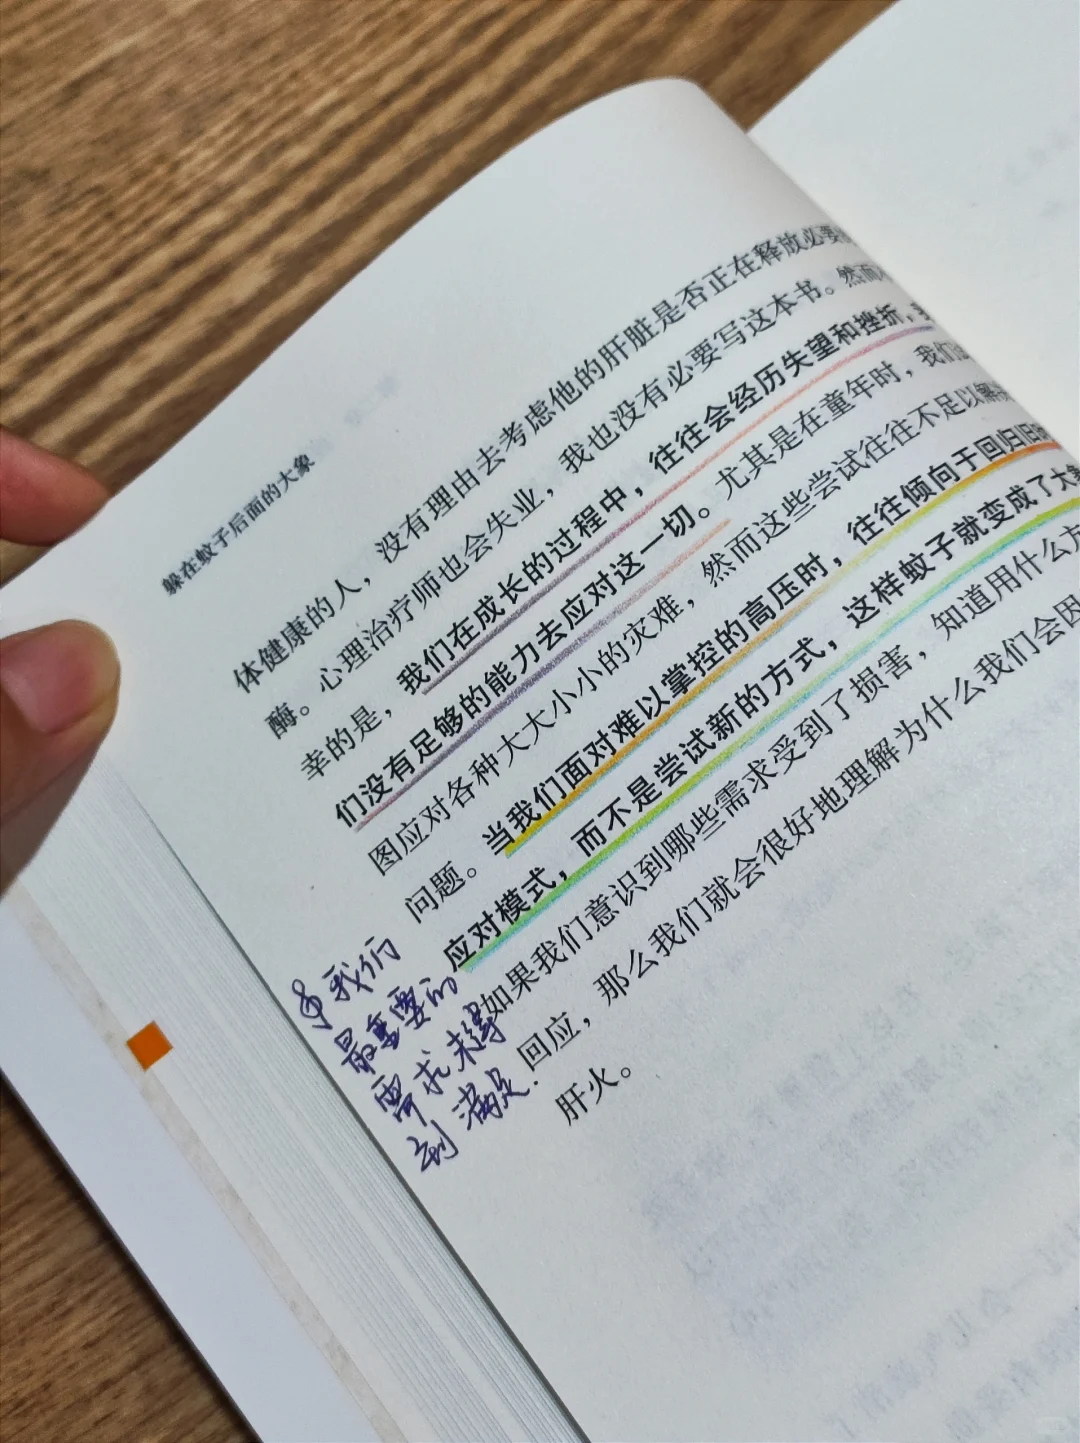 躲在蚊子后面的大象
体健康的人，没有理由去考虑他的肝脏是否正在释放必要
酶。心理治疗师也会失业，我也没有必要写这本书。然而
幸的是，我们在成长的过程中，往往会经历失望和挫折，
们没有足够的能力去应对这一切。尤其是在童年时，我们
图应对各种大大小小的灾难，然而这些尝试往往不足以解
问题。当我们面对难以掌控的高压时，往往倾向于回归旧
应对模式，而不是尝试新的方式，这样蚊子就变成了大
如果我们意识到哪些需求受到了损害，知道用什么方
回应，那么我们就会很好地理解为什么我们会因
肝火。
我们
最重要的
需求未得
到满足.